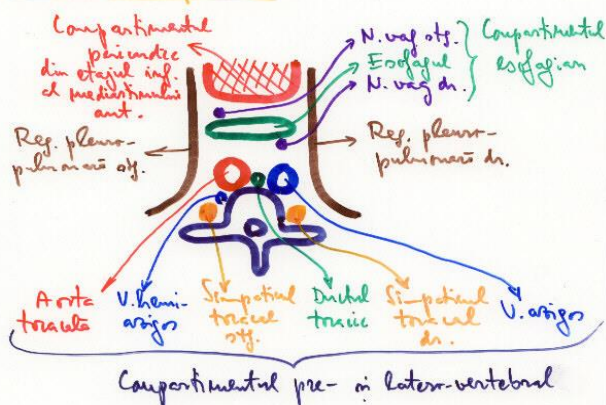 Compartimentul
pericardic
din etajul inf.
al mediastinului
ant.
N. vag stg.
Esofagul
N. vag dr.
Compartimentul
esofagian
Reg. pleuro-
pulmonară stg.
Reg. pleuro-
pulmonară dr.
Aorta
toracală
V. hemi-
azigos
Simpaticul
toracal
stg.
Ductul
toracic
Simpaticul
toracal
dr.
V. azigos
Compartimentul pre- și latero-vertebral